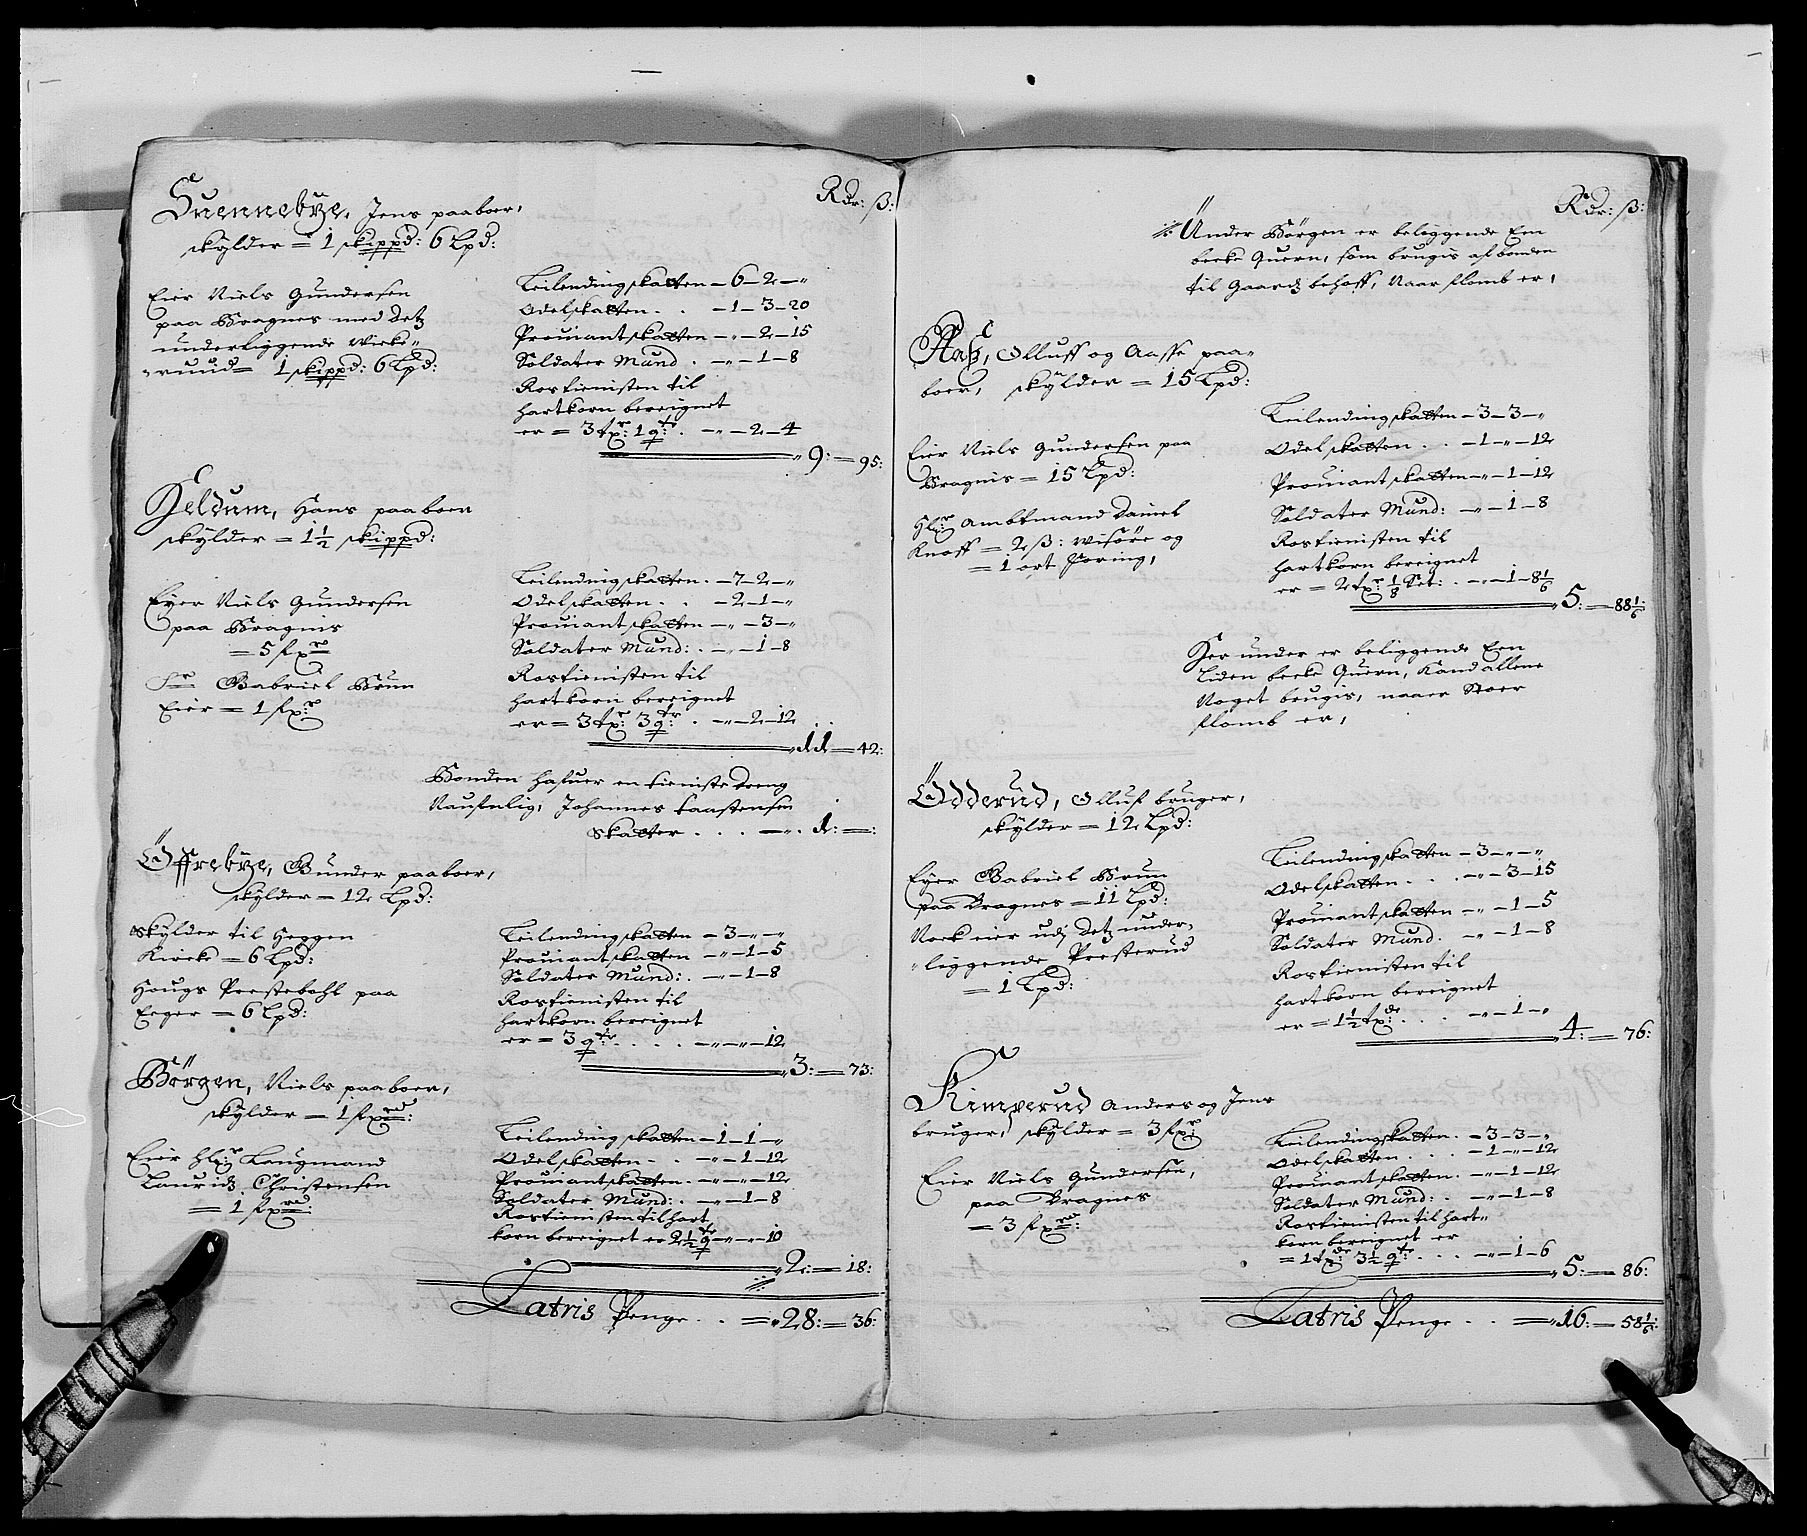 Rdr: ß:
Suennebye, Jens paaboer,
skylder = 1 skippd: 6 Lpd:
Eier Niels Gundersen
paa Bragnes med detz
underliggende Wirke-
-ruud = 1 skippd: 6 Lpd:
Leilendingskatten - 6 - 2 - "
Odelskatten . . - 1 - 3 - 20
Prouiantskatten - " - 2 - 15
Soldater Mund . - " - 1 - 8
Rostienisten til
hartkorn bereignet
er = 3 tr: 1 qr: . - " - 2 - 4
9: = 95:
Jeldum, Hans paaboer
skylder = 1½ skippd:
Eyer Niels Gundersen
paa Bragnis
= 5 fxr
Sr Gabriel Brun
Eier = 1 fxr:
Leilendingskatten . - 7 - 2 - "
Odelskatten . . - 2 - 1 - "
Prouiantskatten - " - 3 - "
Soldater Mund: . - " - 1 - 8
Rostienisten til
hartkorn bereignet
er = 3 tr: 3 qr: . - " - 2 - 12
11 = 42:
Bonden hafuer en tieniste dreng
Naufnlig, Johannes
skatter . . . - " . 1: = :
Offrebye, Gunder paaboer,
skylder = 12 Lpd:
Skylder til Heggen
Kircke = 6 Lpd:
Hougs Prestebohl paa
Eeger = 6 Lpd:
Leilendingskatten - 3 - " - "
Prouiantskatten - " - 1 - 5
Soldater Mund: . - " - 1 - 8
Rostienisten til
hartkorn bereignet
er = 3 qr: . . . . - " - " - 12
3: = 73:
Börgen, Niels paaboer,
skylder = 1 fxrd:
Eier Hl:r Laugmand
Lauridz Christensen
= 1 fxrd:
Leilendingskatten - 1 - 1 - "
Odelskatten . . - " - 1 - 12
Prouiantskatten . - " - " - 12
Soldater Mund: . - " - 1 - 8
Rostienisten til hart
korn bereignet er 2½ qr - " - " - 10
2: = 18:
Latris Penge . . = 28: = 36:
Rdr: ß:
Under Börgen er beliggende Een
becke Quern, som brugis af bonden
til Gaardz behoff, Naar flomb er,
Aass, Olluff og Aasse paa-
boer, skylder = 15 Lpd:
Eier Niels Gundersen paa
Bragnis = 15 Lpd:
Hl:r Ambtmand Daniel
Knoff = 2 ß: wisöre og
= 1 ort foring,
Leilendingskatten - 3 - 3 - "
Odelskatten . . - 1 - " - 12
Prouiantskatten - " - 1 - 12
Soldater Mund: - " - 1 - 8
Rostienisten til
hartkorn bereignet
er = 2 tr: ⅛ Set: . - " - 1 - 8⅙
5: = 88⅙:
Her under er beliggende Een
Liden becke Quern, Kand allene
Noget brugis, naaer Stoer
flomb er,
Odderud, Olluf bruger,
skylder = 12 Lpd:
Eyer Gabriel Brun
paa Bragnes = 11 Lpd:
Nock eier udj detz under-
-liggende Presterud
= 1 Lpd:
Leilendingskatten - 3 - " - "
Odelskatten . . . - " - 3 - 15
Prouiantskatten - " - 1 - 5
Soldater Mund . - " - 1 - 8
Rostienisten til
hartkorn bereignet
er = 1½ tde: . . . - " - 1 - "
4: = 76:
Kimperud Anders og Jens
bruger, skylder = 3 fxr:
Eier Niels Gundersen,
paa Bragnes
= 3 fxrd:
Leilendingskatten . - 3 - 3 - "
Odelskatten . . . - 1 - " - 12
Prouiantskatten . - " - 1 - 12
Soldater Mund: . - " - 1 - 8
Rostienisten til hart-
korn bereignet er
= 1 tde: 3½ qr: . . . - " - 1 - 6
5: = 86:
Latris Penge . . = 16: = 58⅙: